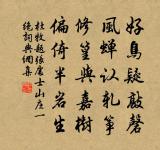 好鳥疑敲磬
風蟬認軋箏
修篁與嘉樹
偏倚半岩生
杜牧題張處士山庄一
絕詞典網集